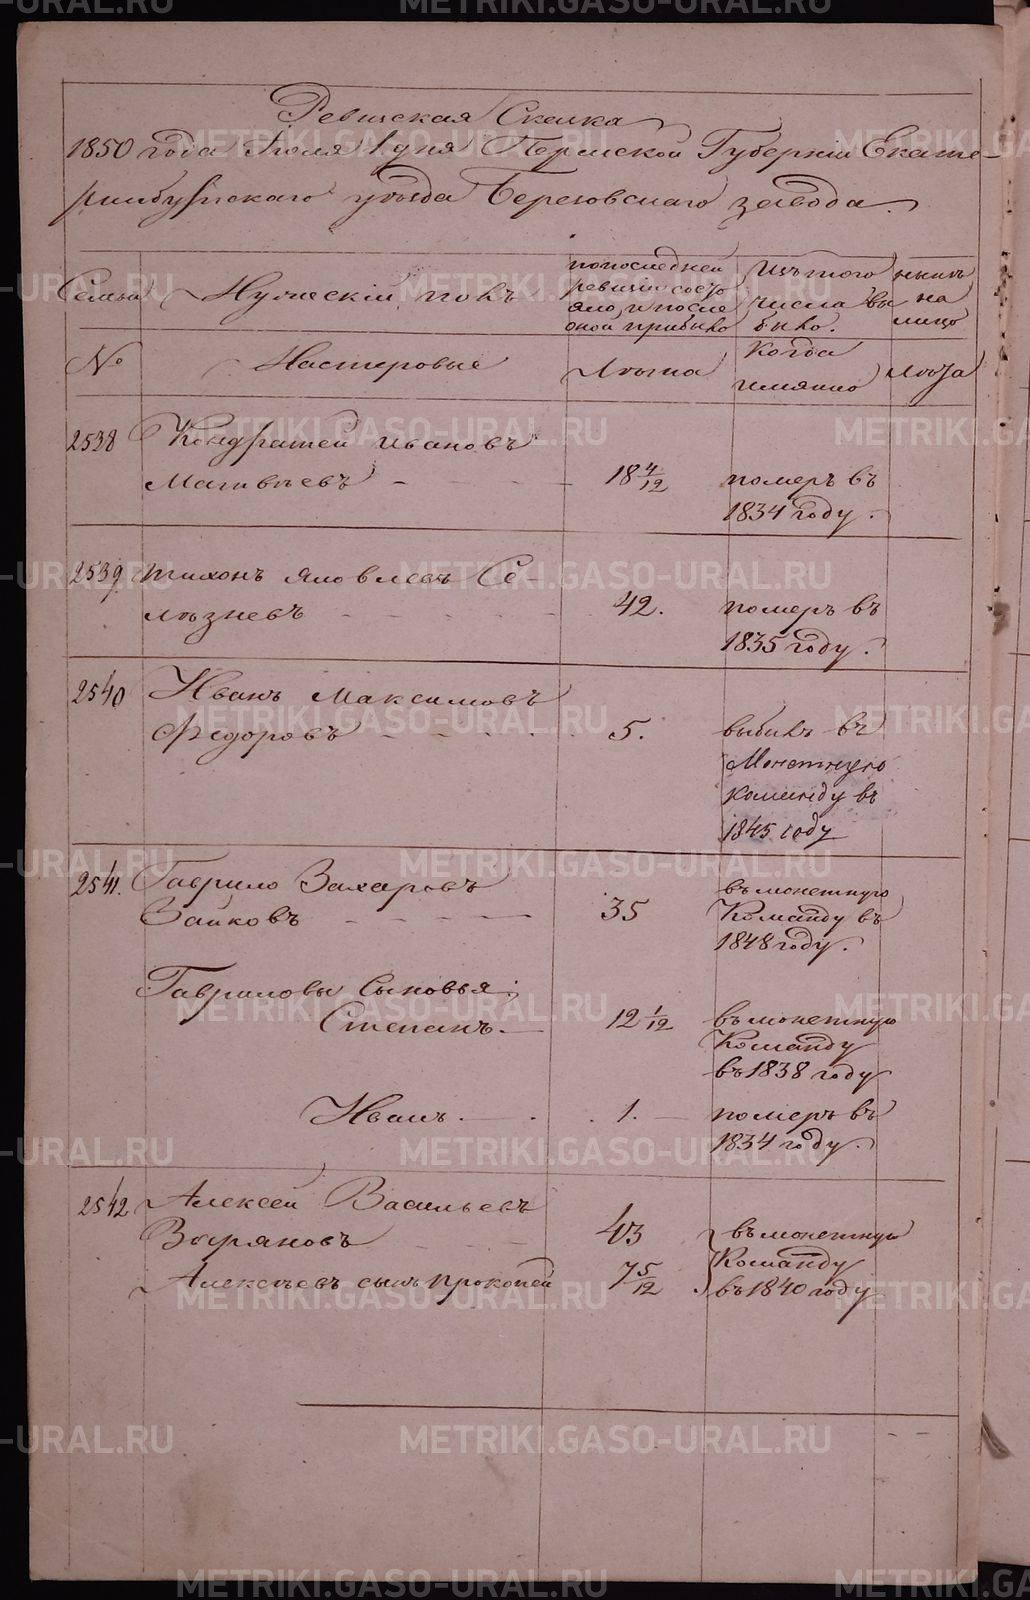 Ревизская Сказка
1850 года Июля 1 дня Пермской Губерніи Екате-
ринбургскаго уѣзда Березовскаго завода.
Семьи
№
Мужескій полъ
Мастеровые
по последней
ревизіи состо
яло, и после
оной прибыло
Лѣта
Изъ того
числа вы
было.
Когда
имянно
нынѣ
на
лицо
Лѣта
2538 Кондратей Ивановъ
Матвѣевъ - - - - 18 4/12 померъ въ
1834 году.
2539 Тихонъ Яковлевъ Се-
лѣзневъ - - - - 42. померъ въ
1835 году.
2540 Иванъ Максимовъ
Федоровъ - - - - 5. выбылъ въ
Монетную
команду въ
1845 году
2541. Гаврило Захаровъ
Зайковъ - - - - 35 въ монетную
Команду въ
1848 году.
Гавриловы сыновья;
Степанъ. - 12 1/12 въ монетную
Команду
въ 1838 году
Иванъ. - . 1. - померъ въ
1834 году.
2542 Алексей Васильевъ
43 въ монетную
Команду
Алексѣевъ сынъ Прокопей 7 5/12 въ 1840 году
METRIKI.GASO-URAL.RU